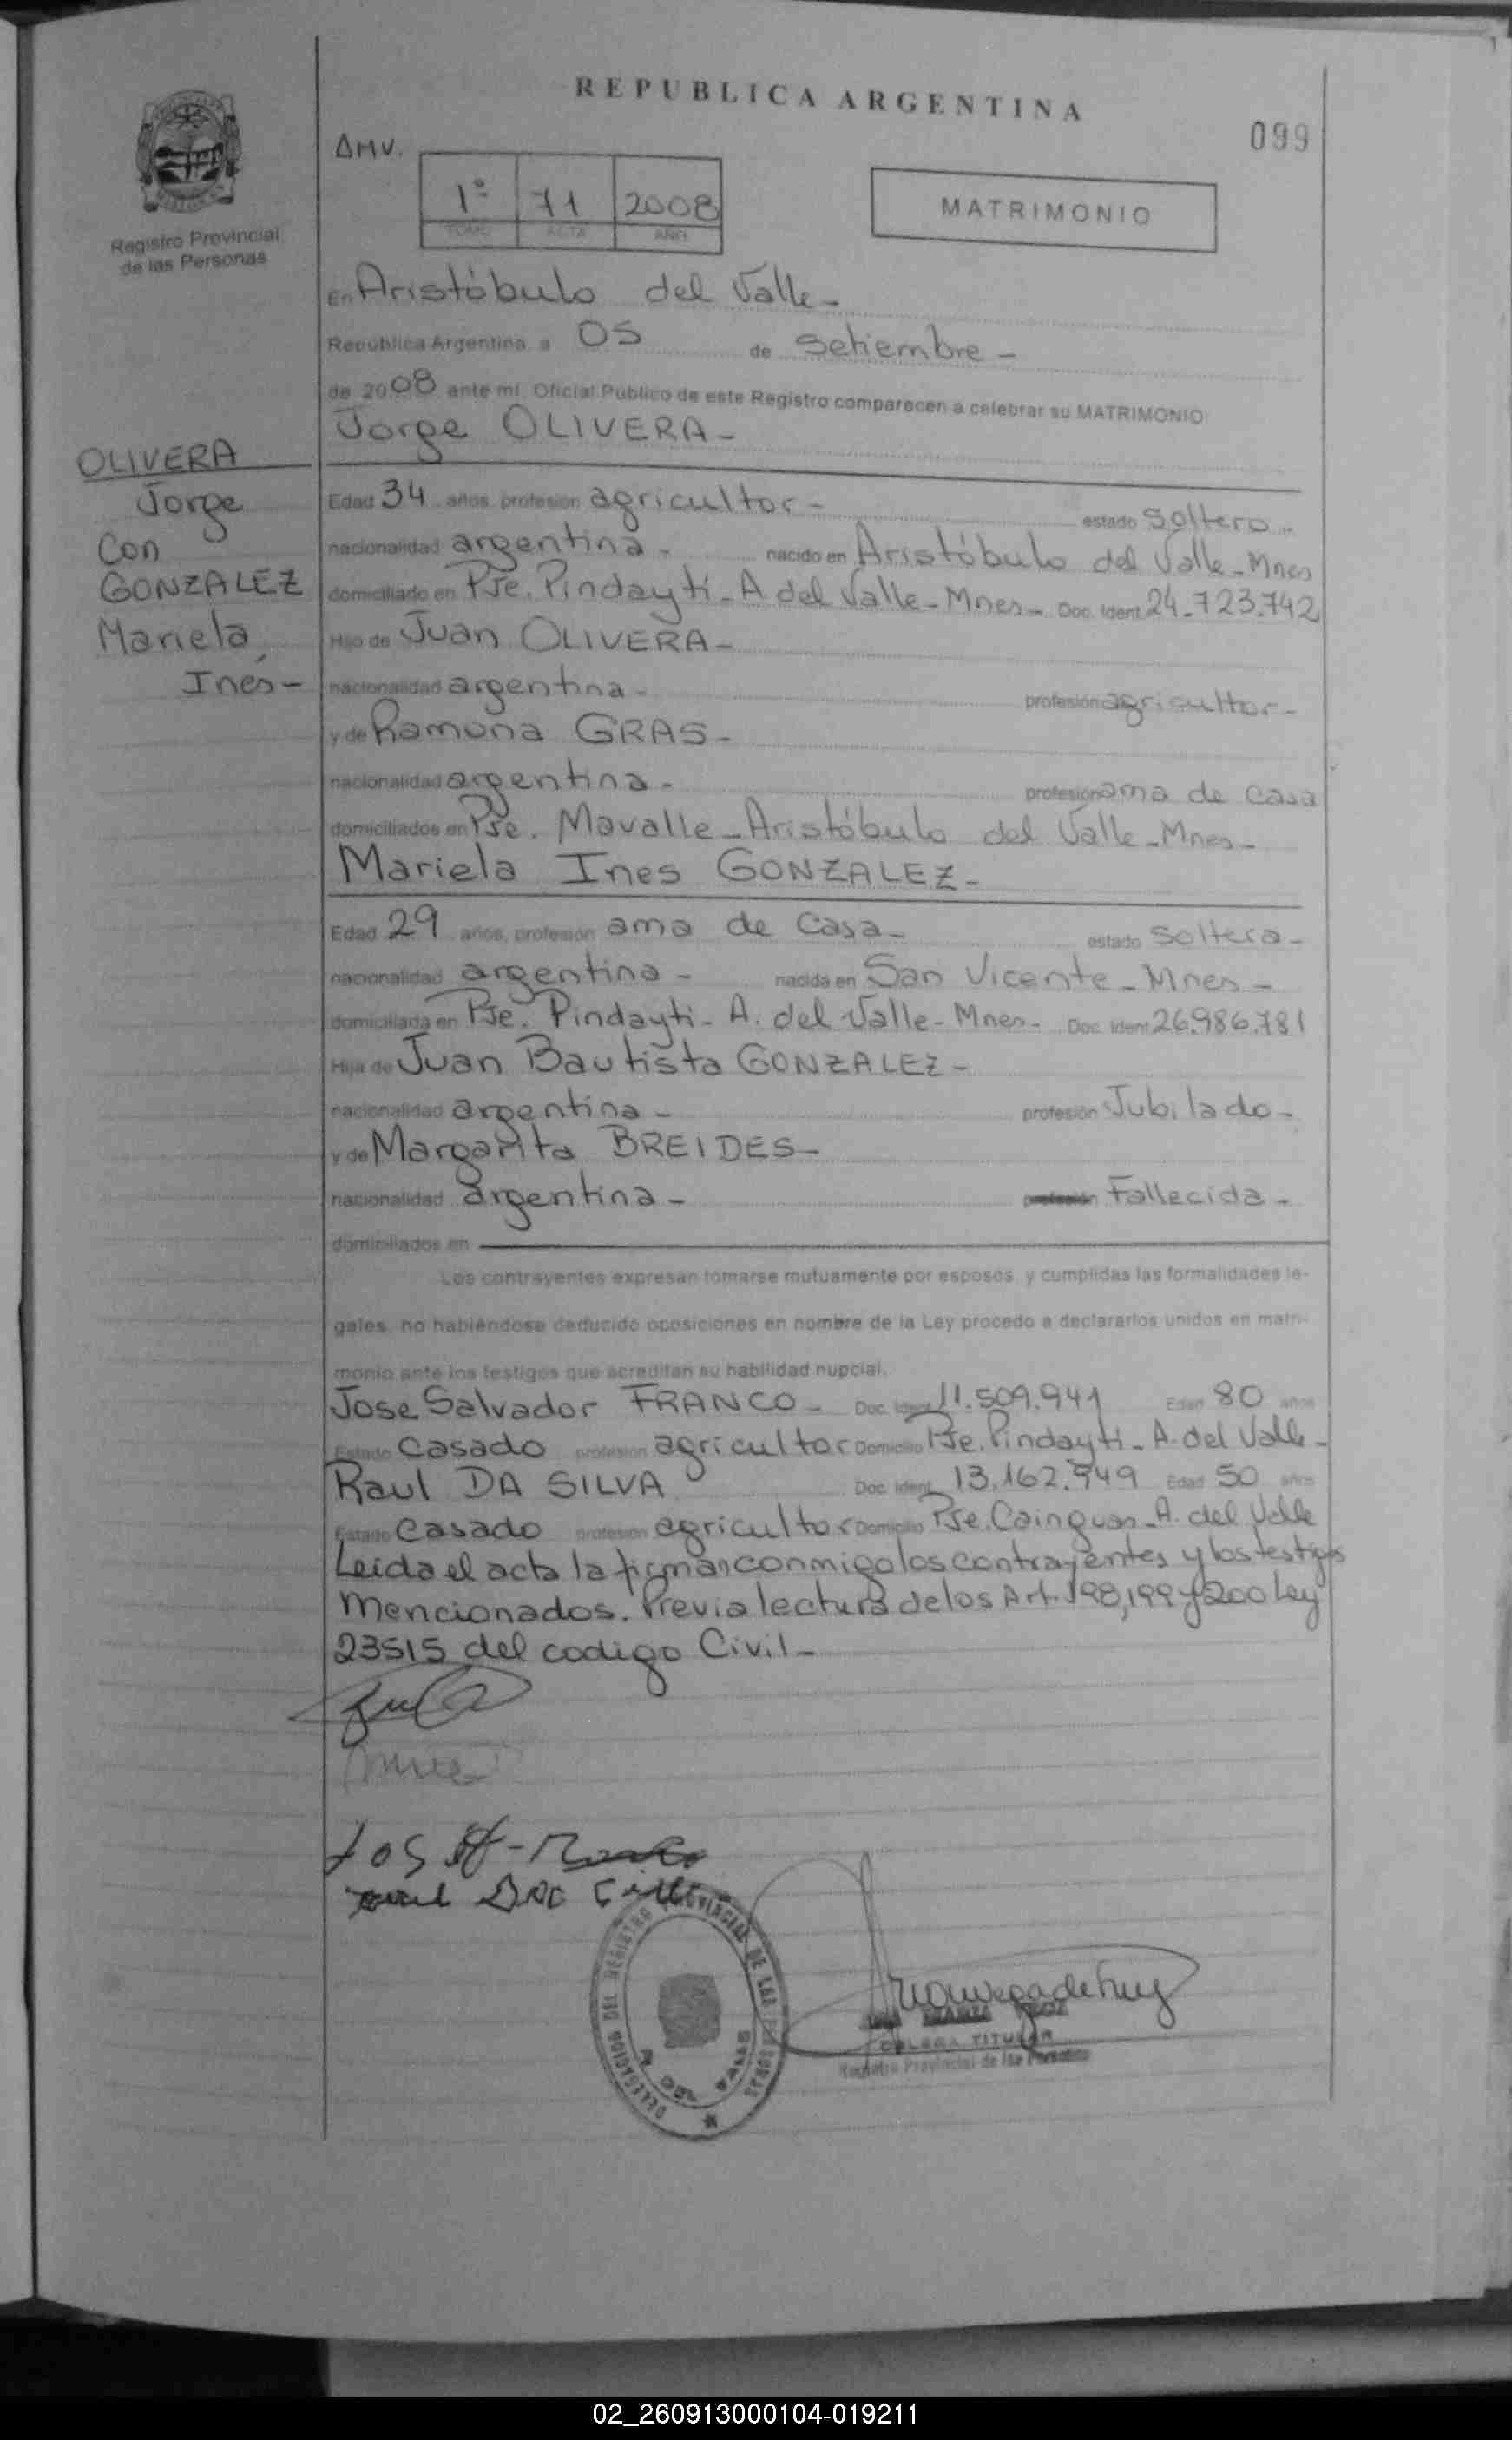 REPUBLICA ARGENTINA
099
AMV.
1º 71 2008
TOMO ACTA AÑO
MATRIMONIO
Registro Provincial
de las Personas
En Aristóbulo del Valle-
República Argentina a 05 de Setiembre-
de 2008 ante mi, Oficial Público de este Registro comparecen a celebrar su MATRIMONIO
Jorge OLIVERA-
OLIVERA
Jorge
Con
GONZALEZ
Mariela
Inés-
Edad 34 años profesión agricultor- estado Soltero-
nacionalidad argentina- nacido en Aristóbulo del Valle-Mnes
domiciliado en Pje. Pindaytí-A del Valle-Mnes- Doc. Ident 24.723.742
Hijo de Juan OLIVERA-
nacionalidad argentina- profesión agricultor-
y de Ramona GRAS-
nacionalidad argentina- profesión ama de casa
domiciliados en Pje. Mavalle-Aristóbulo del Valle-Mnes-
Mariela Ines GONZALEZ-
Edad 29 años, profesión ama de Casa- estado Soltera-
nacionalidad argentina- nacida en San Vicente-Mnes-
domiciliada en Pje. Pindayti-A. del Valle-Mnes- Doc. Ident 26.986.781
Hija de Juan Bautista GONZALEZ-
nacionalidad argentina- profesión Jubilado-
y de Margarita BREIDES-
nacionalidad argentina- profesión Fallecida-
domiciliados en
Los contrayentes expresan tomarse mutuamente por esposos, y cumplidas las formalidades le-
gales, no habiéndose deducido oposiciones en nombre de la Ley procedo a declararlos unidos en matri-
monio ante los testigos que acreditan su habilidad nupcial.
Jose Salvador FRANCO- Doc. Ident 11.509.941 Edad 80 años
Estado Casado profesión agricultor Domicilio Pje. Pindayti-A. del Valle-
Raul DA SILVA Doc. Ident 13.162.949 Edad 50 años
Estado Casado profesión agricultor Domicilio Pje. Cainguas-A. del Valle
Leída el acta la firman conmigo los contrayentes y los testigos
Mencionados. Previa lectura de los Art. 198,199 y 200 Ley
23515 del codigo Civil-
DELEGACION DEL REGISTRO PROVINCIAL DE LAS PERSONAS
A. DEL VALLE
TITULAR
Registro Provincial de las Personas
02_260913000104-019211